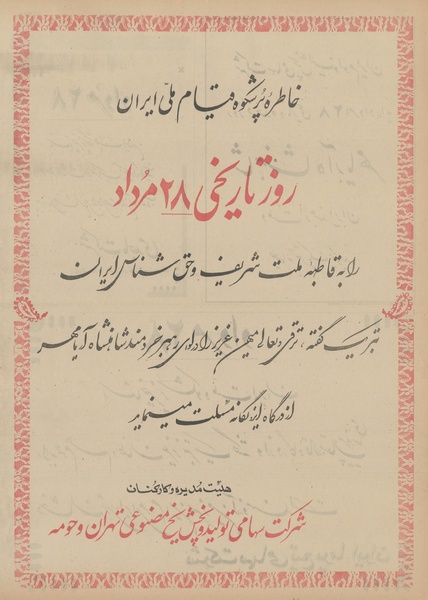 خاطره پرشکوه قیام ملی ایران
روز تاریخی ۲۸ مرداد
را به قاطبه ملت شریف و حق شناس ایران
تبریک گفته، ترقی و تعالی میهن عزیز را در لوای رهبر خردمند شاهنشاه آریامهر
از درگاه ایزد یگانه مسئلت مینماید
هیئت مدیره و کارکنان
شرکت سهامی تولید و پخش یخ مصنوعی تهران و حومه